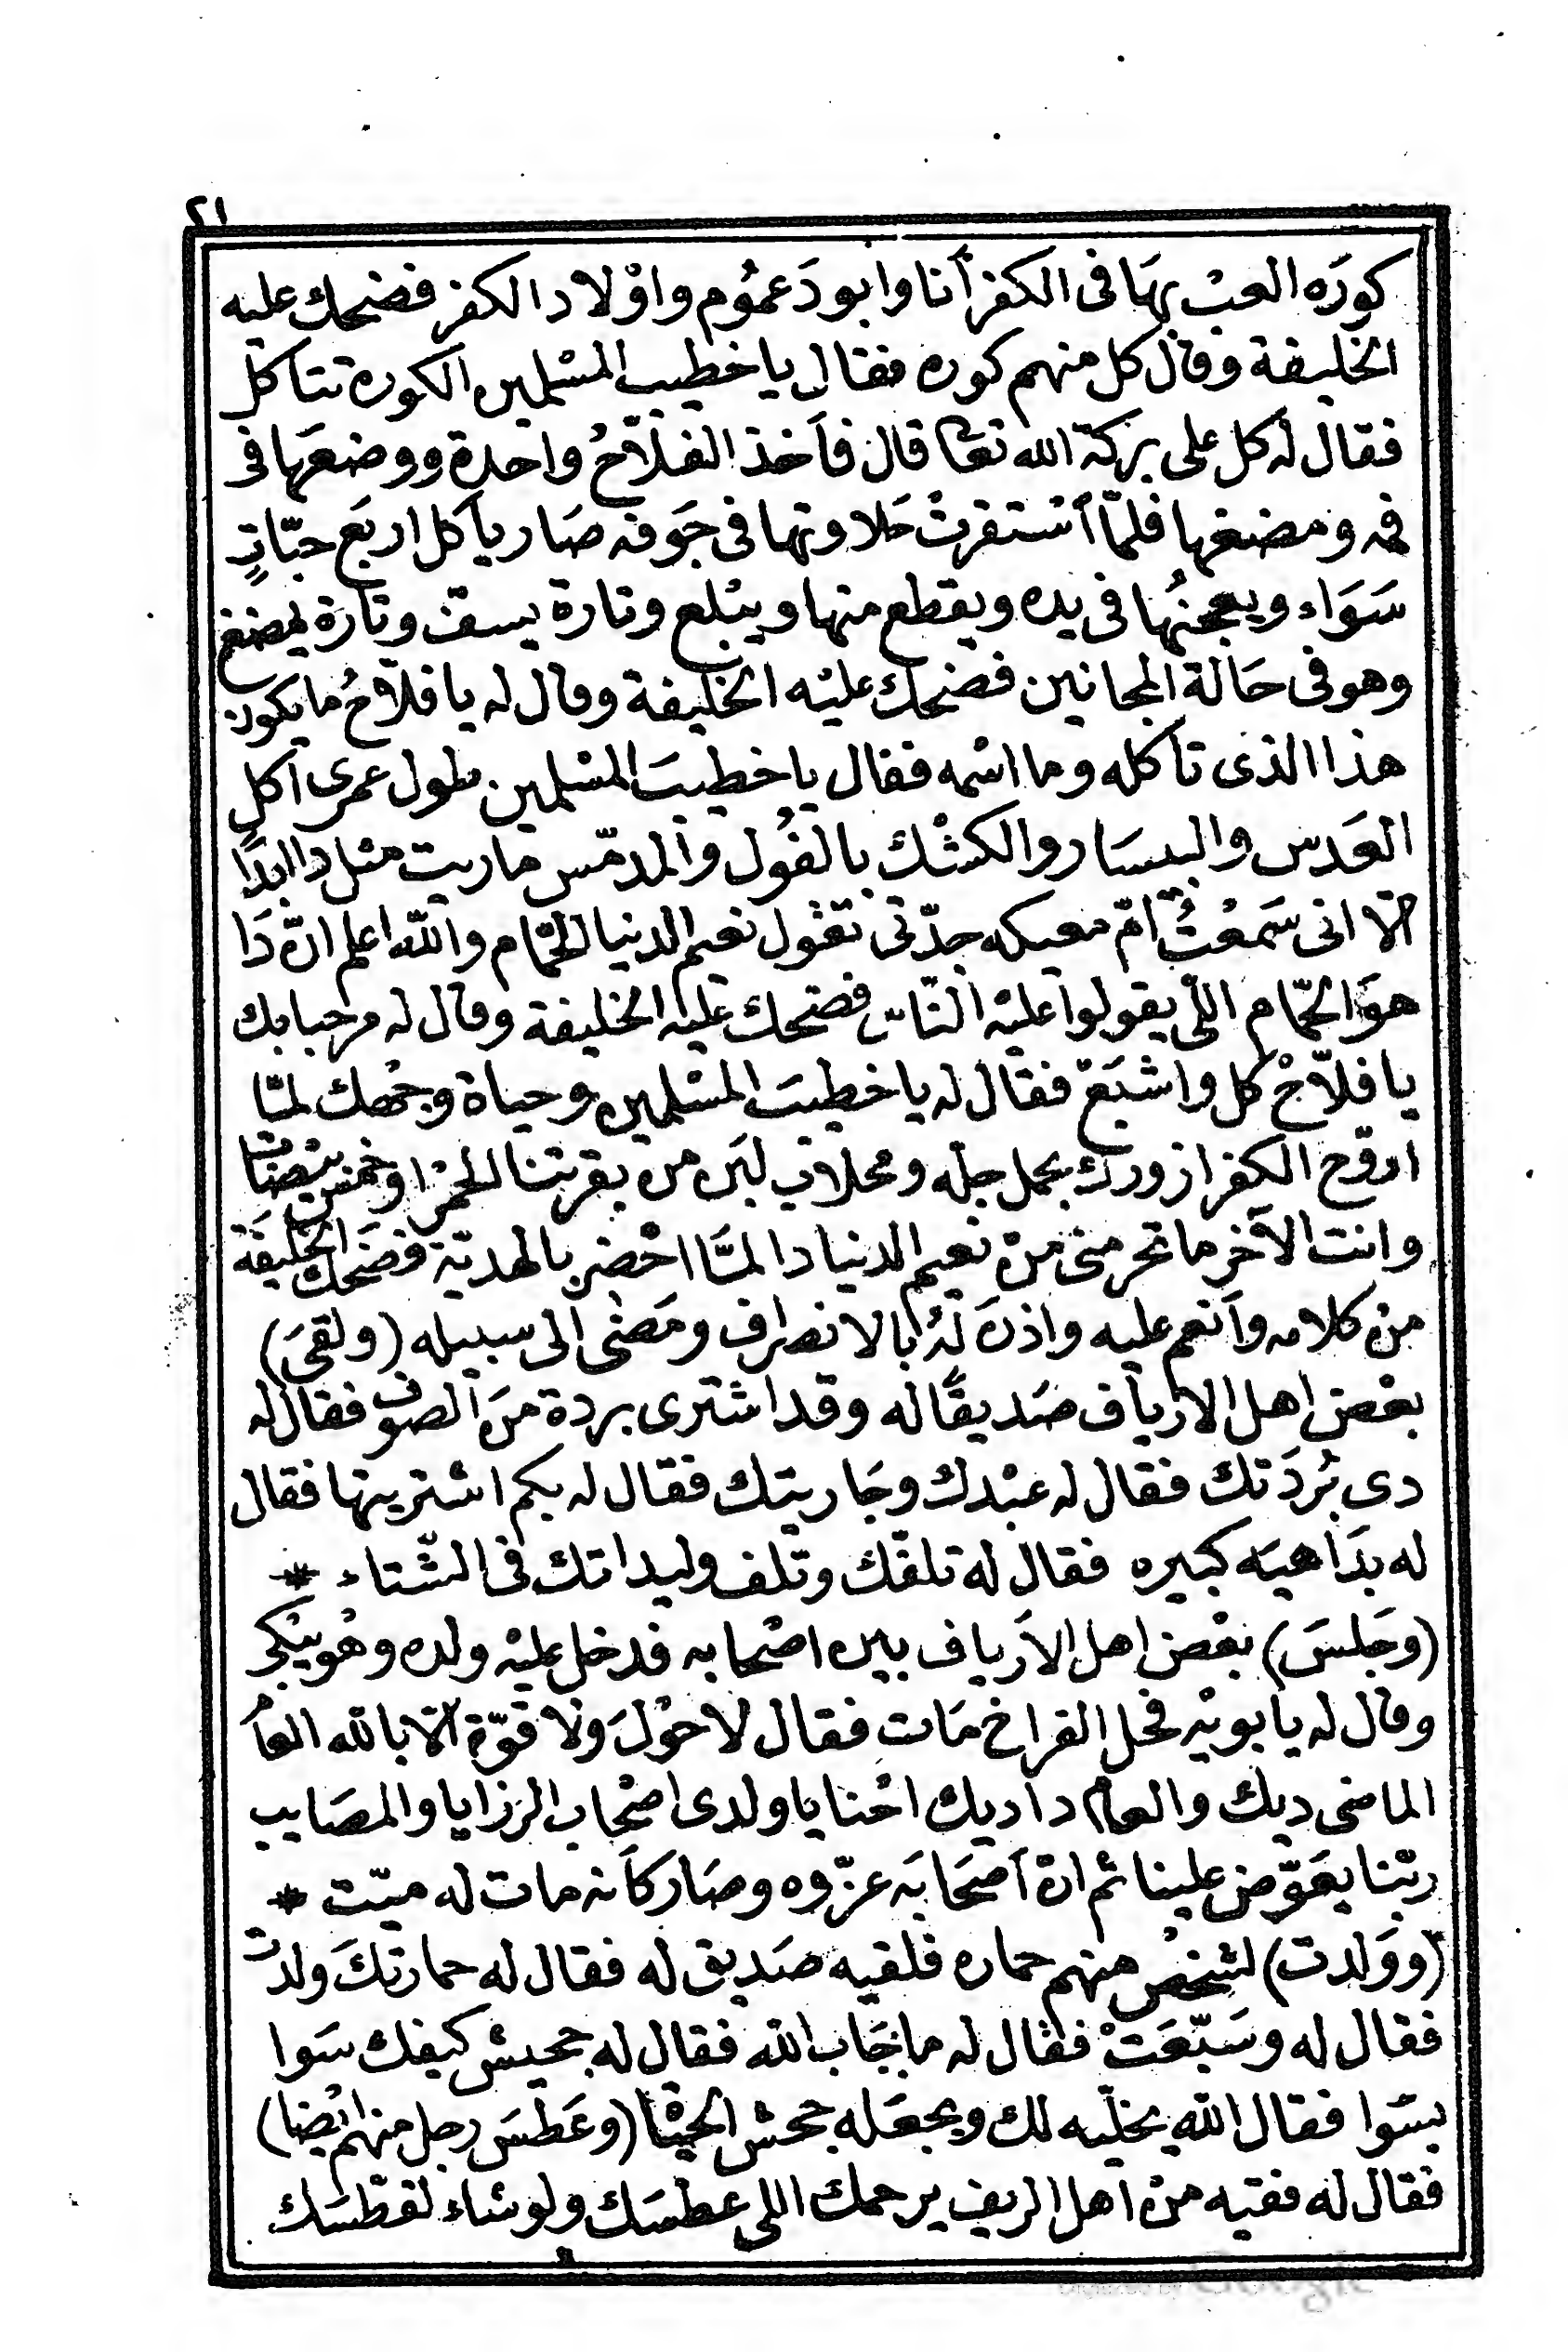 ٢١
كورَه العبْ بهَا فى الكفر أنا وابو دَعمُوم واوْلاد الكفر فضحك عليه
الخليفة وقال كل منهم كوره فقال يا خطيب المسْلمين الكورة تتاكل
فقال له كل على بركة الله تعا قال فأخذ الفلاّحُ واحدة ووضعَها فى
فمه ومضغها فلمّا أسْتقرتْ حَلاوتها فى جَوفه صَار ياكل اربَع حبّاتٍ
سَوَاء ويعجنُها فى يده ويقطع منها ويبْلع وتارة يسفّ وتارة يمضغ
وهو فى حَالة المجانين فضحك عليْه الخليفة وقال له يا فلاّحُ ما يكون
هذا الذى تأكله وما اسْمه فقال يا خطيبَ المسْلمين طول عمرى آكل
العَدس والبيسَار والكشْك بالفُول والمدمّس ما ريت مثل دا ابدًا
الا انى سَمعْتُ امّ معيكه جدّتى تقول نعيم الدنيا الحمّام والله اعلم انّ دَا
هوَ الحمّام اللّى يقولوا عليْه النّاس فضحك عليه الخليفة وقال له مرحبا بك
يا فلاّحْ كل واشبَعْ فقال له يا خطيبَ المسْلمين وحياة وجْهك لمّا
اروّح الكفر ازورك بحمل جلّه ومحلاب لبَن من بقرتنا الحمْرا وخمس بيْضات
وانت الآخر ما تحرمنى منْ نعيم الدنيا دا لمَّا احْضر بالهديّة فضَحك الخليفَة
منْ كلامه وأنعم عليه واذن لَهُ بالانصراف ومَضى الى سبيله (ولقىَ)
بعْض اهل الارياف صَديقًا له وقد اشترى بردة منَ الصوف فقال له
دى بُردَتك فقال له عبْدك وجَاريتك فقال له بكم اشتريتها فقال
له بدَاهيَه كبيره فقال له تلفّك وتلف وليداتك فى الشّتاء *
(وجَلسَ) بعْض اهل الأرياف بين اصْحابه فدخل عليْه ولده وهُو يبْكى
وقال له يا بويْه فحل الفراخ مَات فقال لا حوْلَ ولا قوّة الّا بالله العاْم
الماضى ديك والعام دا ديك احْنا يا ولدى اصْحاب الرزايا والمصَايب
ربّنا يعَوّض علينا ثم انّ أصحَابَه عزّوه وصَار كأنه مات له ميّت *
(ووَلدت) لشخْص منهم حماره فلقيه صَديق له فقال له حمارتكَ ولدت
فقال له وسَبّعَتْ فقال له ما جَاب الله فقال له جحيش كيفك سَوا
بسَوا فقال الله يخلّيه لك ويجعَله جحش الحيْا (وعَطسَ رجل منهم ايْضا)
فقال له فقيه منْ اهل الريف يرحمك اللى عطسَك ولو شاء لفطّسَك